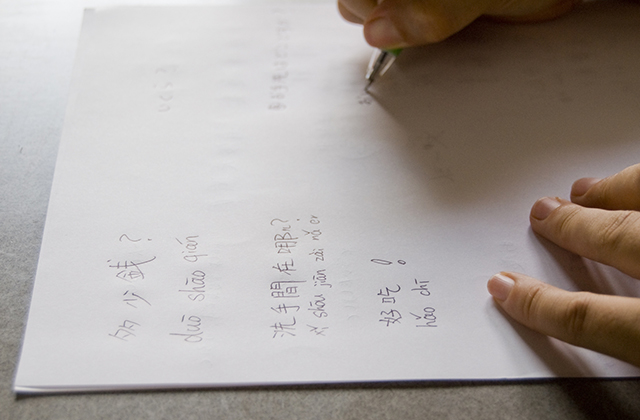 多少錢？
duō shāo qián
洗手間在哪儿？
xǐ shǒu jiān zài nǎ er
好吃！
hǎo chī